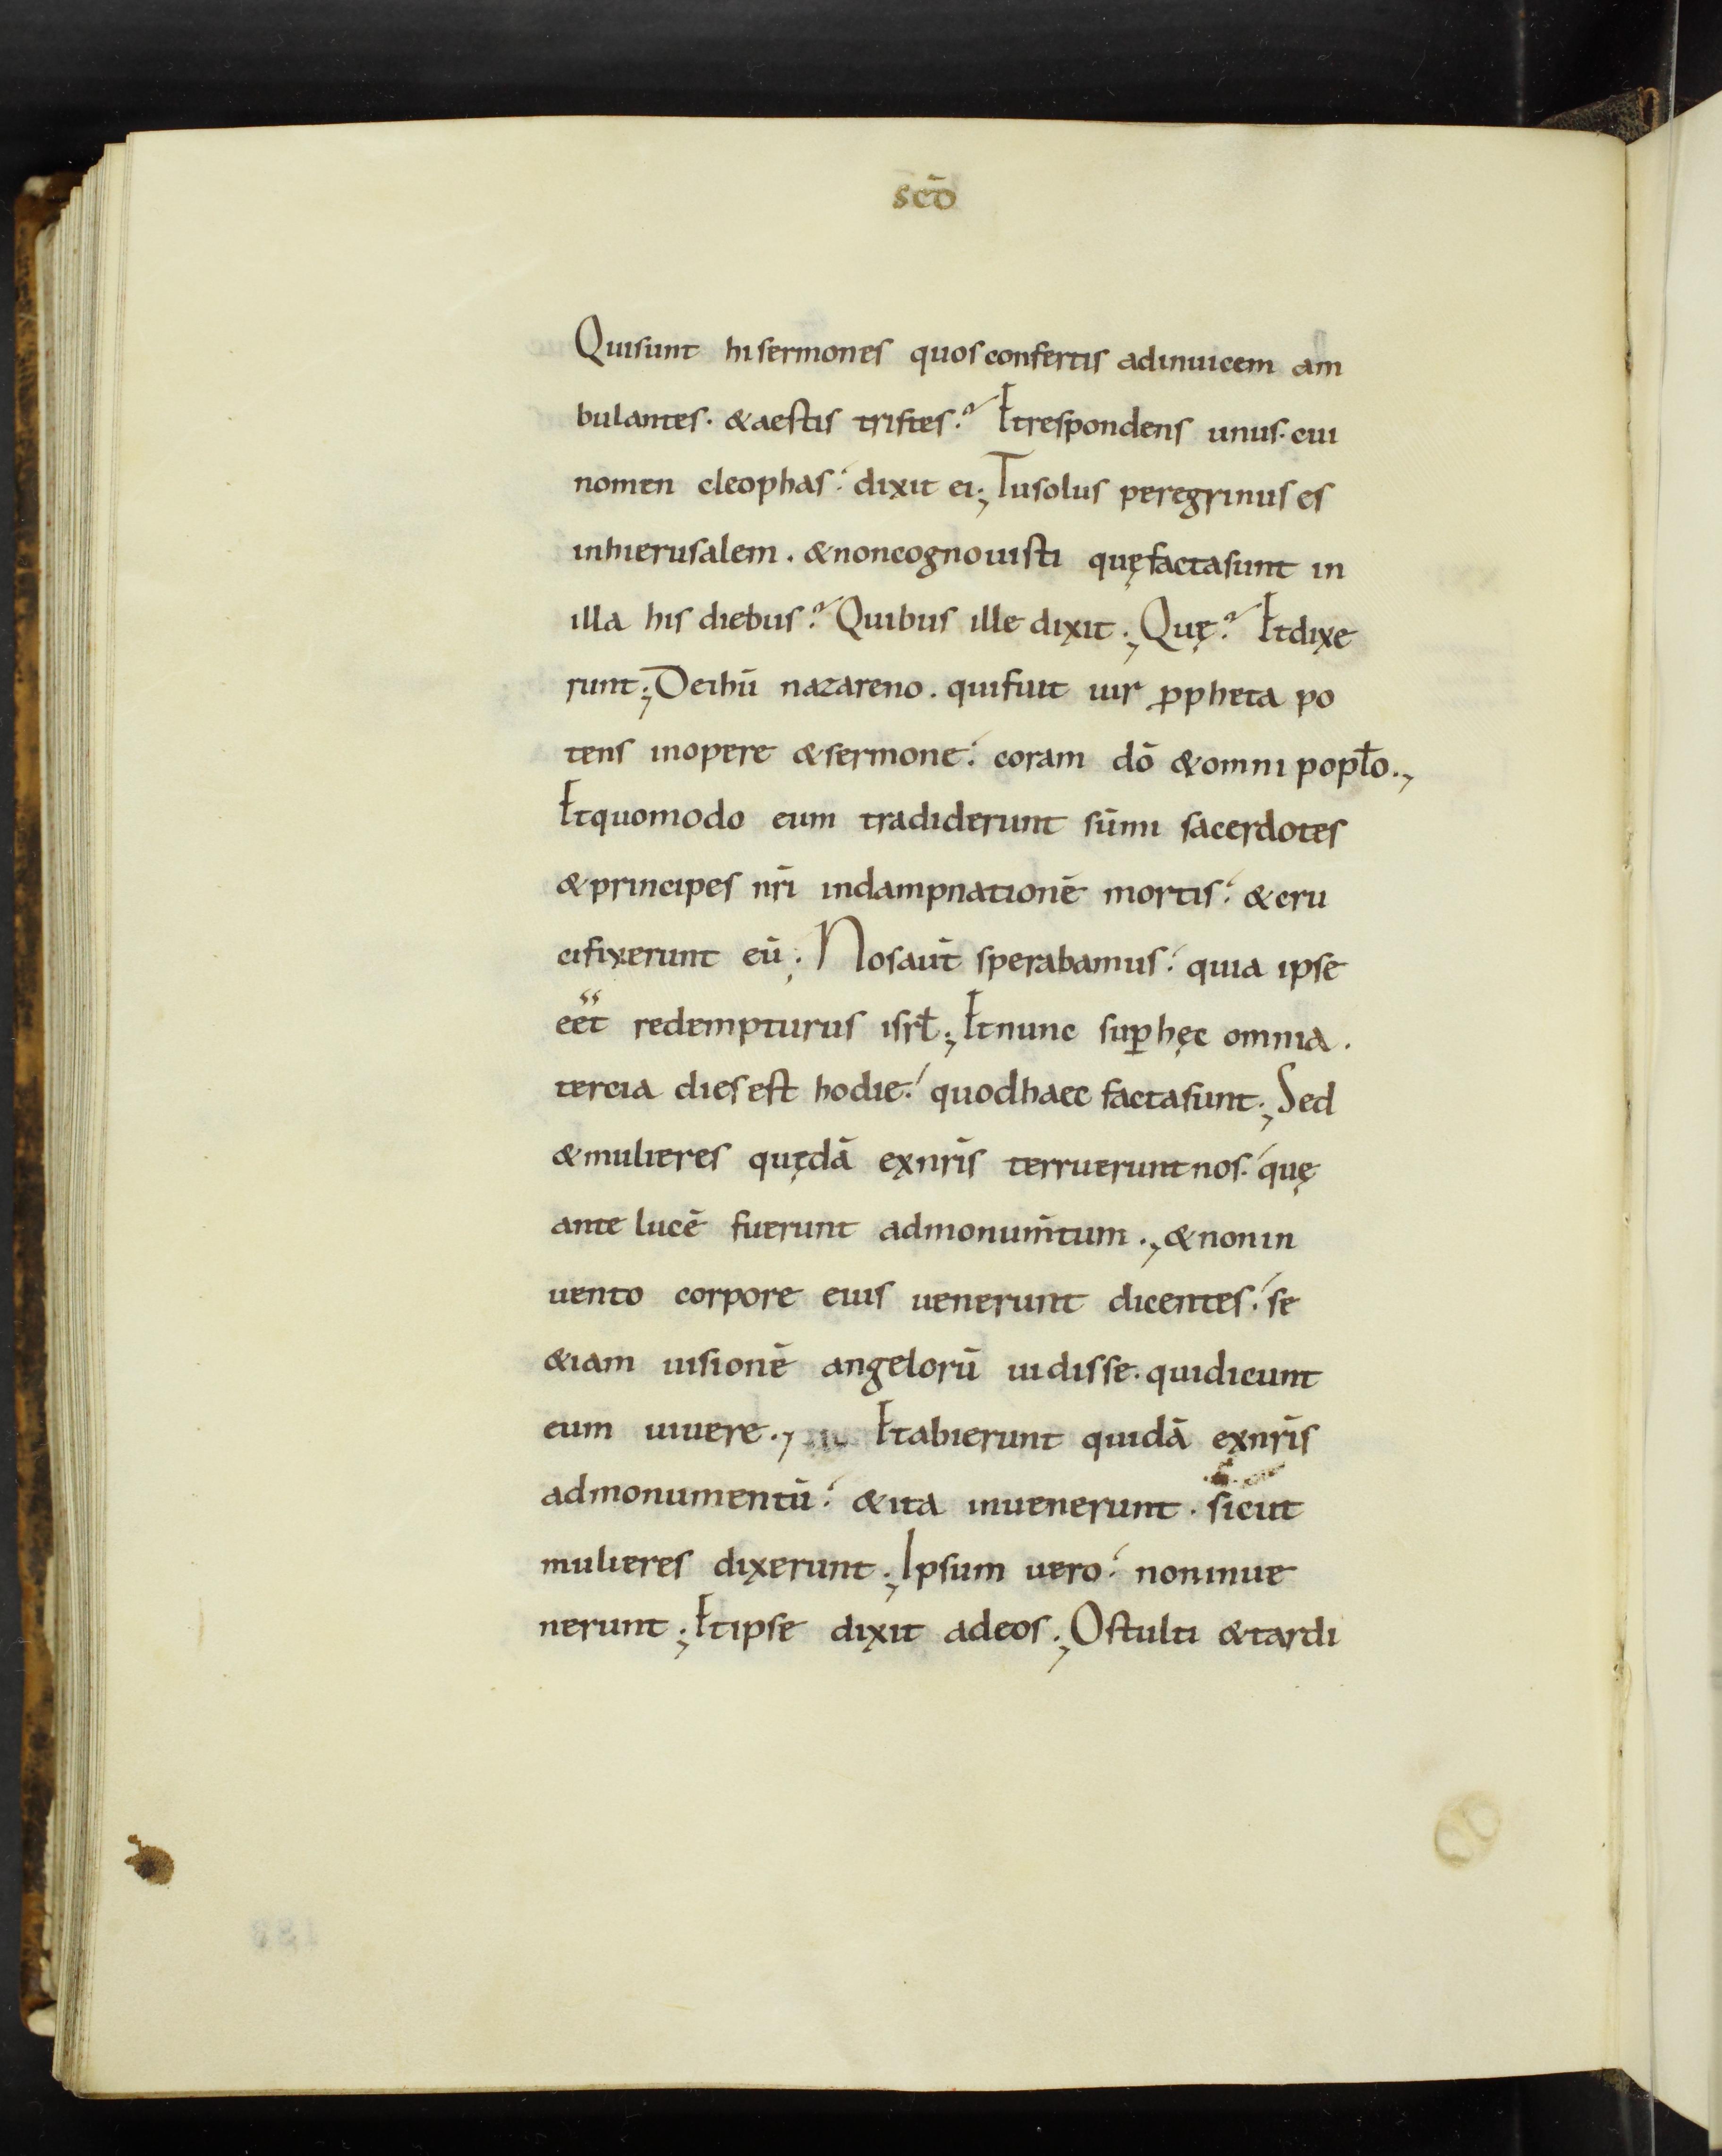 scđ
Quisunt hisermones quosconfertis adinuicem am
bulantes. &aestis tristes? Etrespondens unus. cui
nomen cleophas: dixit ei; Tusolus peregrinus es
inhierusalem. &noncognouisti quęfactasunt in
illa his diebus? Quibus ille dixit; Quę? Etdixe
runt; Deihū nazareno. quifuit uir ꝓpheta po
tens inopere &sermone: coram dō &omni poplo.,
Etquomodo eum tradiderunt sūmi sacerdotes
&principes nr̄i indampnationē mortis: &cru
cifixerunt eū; Nosaūt sperabamus: quia ipse
eēt redempturus isrł; Etnunc suꝑhęc omnia.
tercia diesest hodie: quodhaec factasunt; Sed
&mulieres quędā exnr̄is terruerunt nos: quę
ante lucē fuerunt admonum̄tum., &nonin
uento corpore eius uenerunt dicentes: se
&iam uisionē angelorū uidisse. quidicunt
eum uiuere., Etabierunt quidā exnr̄is
admonumentū: &ita inuenerunt. sicut
mulieres dixerunt; Ipsum uero: noninue
nerunt; Etipse dixit adeos; Ostulti &tardi